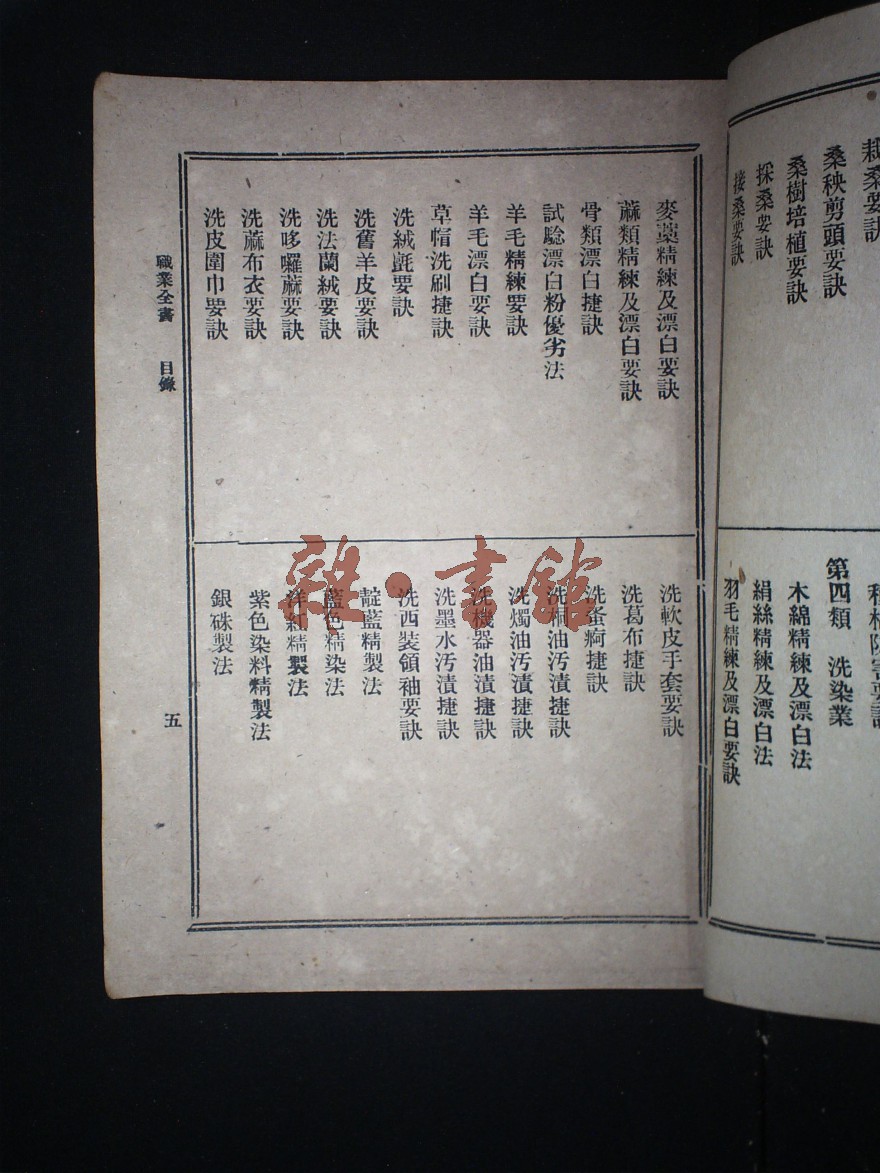 栽桑要訣
桑秧剪頭要訣
桑樹培植要訣
採桑要訣
接桑要訣
第四類 洗染業
木綿精練及漂白法
絹絲精練及漂白法
羽毛精練及漂白要訣
麥藁精練及漂白要訣
蔴類精練及漂白要訣
骨類漂白捷訣
試驗漂白粉優劣法
羊毛精練要訣
羊毛漂白要訣
草帽洗刷捷訣
洗絨氈要訣
洗舊羊皮要訣
洗法蘭絨要訣
洗哆囉蔴要訣
洗蔴布衣要訣
洗皮圍巾要訣
洗軟皮手套要訣
洗葛布捷訣
洗蚤痾捷訣
洗桐油汚漬捷訣
洗燭油汚漬捷訣
洗機器油漬捷訣
洗墨水汚漬捷訣
洗西裝領袖要訣
靛藍精製法
藍色精染法
洋紅精製法
紫色染料精製法
銀硃製法
職業全書 目錄
五
雜·書館